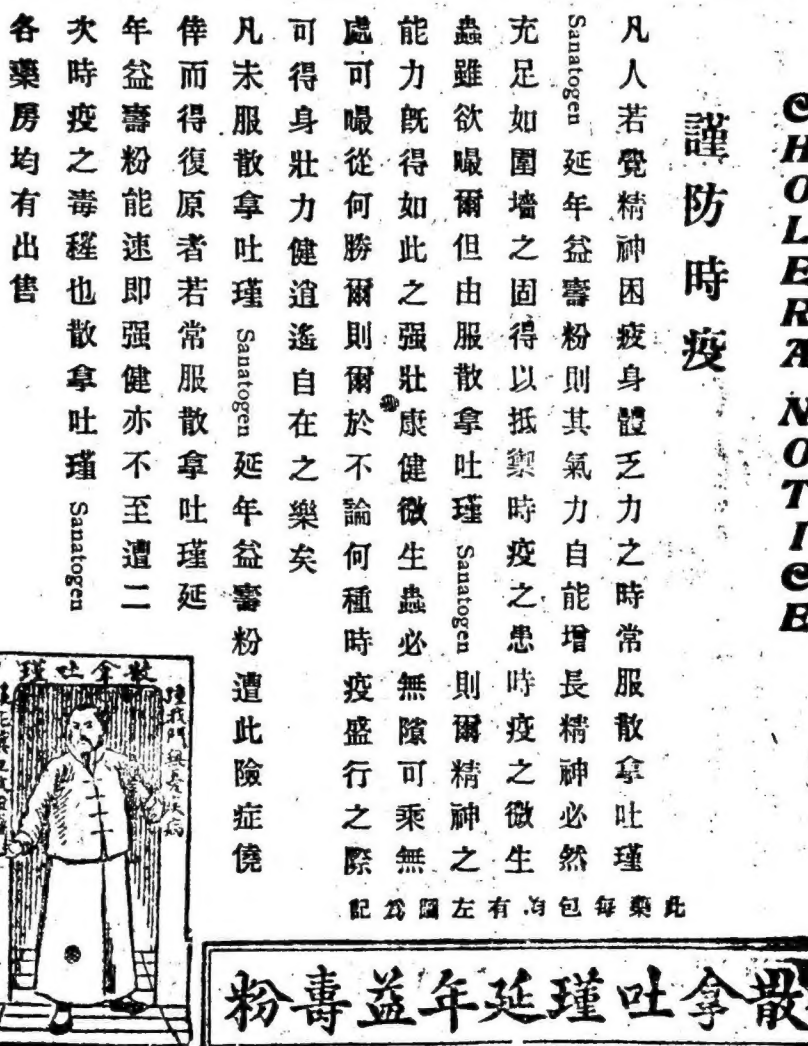 CHOLERA NOTICE
謹防時疫
凡人若覺精神困疲身體乏力之時常服散拿吐瑾
Sanatogen 延年益壽粉則其氣力自能增長精神必然
充足如圍墻之固得以抵禦時疫之患時疫之微生
蟲雖欲嘬爾但由服散拿吐瑾 Sanatogen 則爾精神之
能力既得如此之强壯康健微生蟲必無隙可乘無
處可嘬從何勝爾則爾於不論何種時疫盛行之際
可得身壯力健逍遙自在之樂矣
凡未服散拿吐瑾 Sanatogen 延年益壽粉遭此險症僥
倖而得復原者若常服散拿吐瑾延
年益壽粉能速即强健亦不至遭二
次時疫之毒蓰也散拿吐瑾 Sanatogen
各藥房均有出售
此藥每包均有左圖爲記
散拿吐瑾
散拿吐瑾延年益壽粉